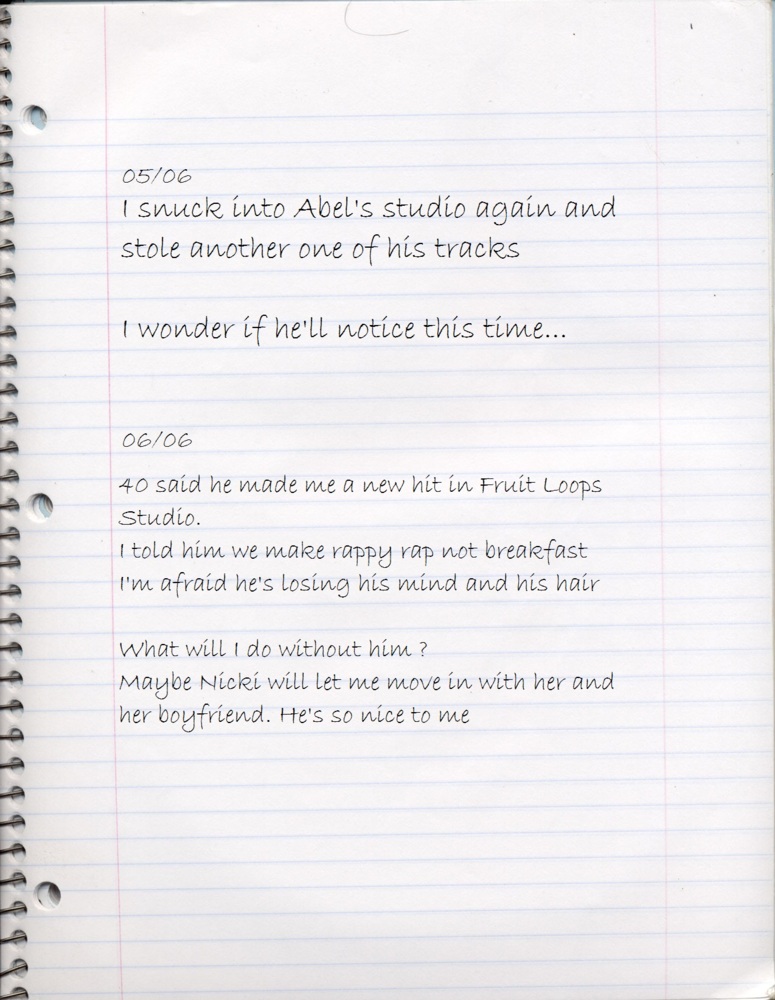 05/06
I snuck into Abel's studio again and
stole another one of his tracks
I wonder if he'll notice this time...
06/06
40 said he made me a new hit in Fruit Loops
Studio.
I told him we make rappy rap not breakfast
I'm afraid he's losing his mind and his hair
What will I do without him ?
Maybe Nicki will let me move in with her and
her boyfriend. He's so nice to me